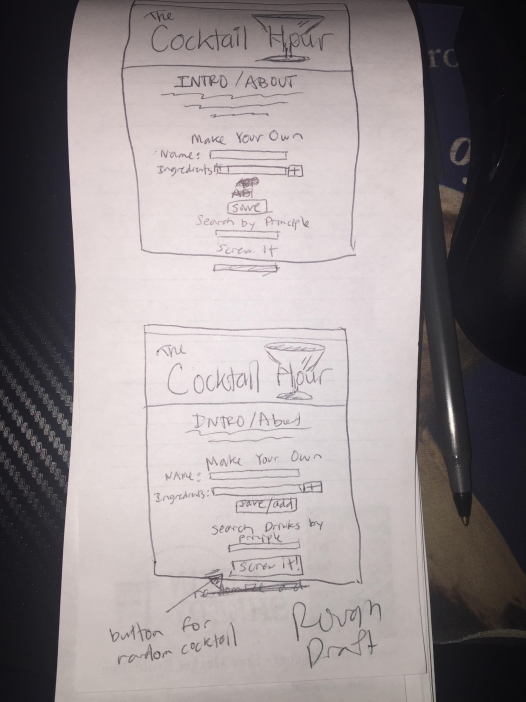 The
Cocktail Hour
INTRO/ABOUT
Make Your Own
Name:
Ingredients:
+
save
Search by Principle
Screw It
The
Cocktail Hour
INTRO/About
Make Your Own
NAME:
Ingredients:
+
save/add
Search Drinks by
principle
Screw it!
button for
random cocktail
Rough
Draft